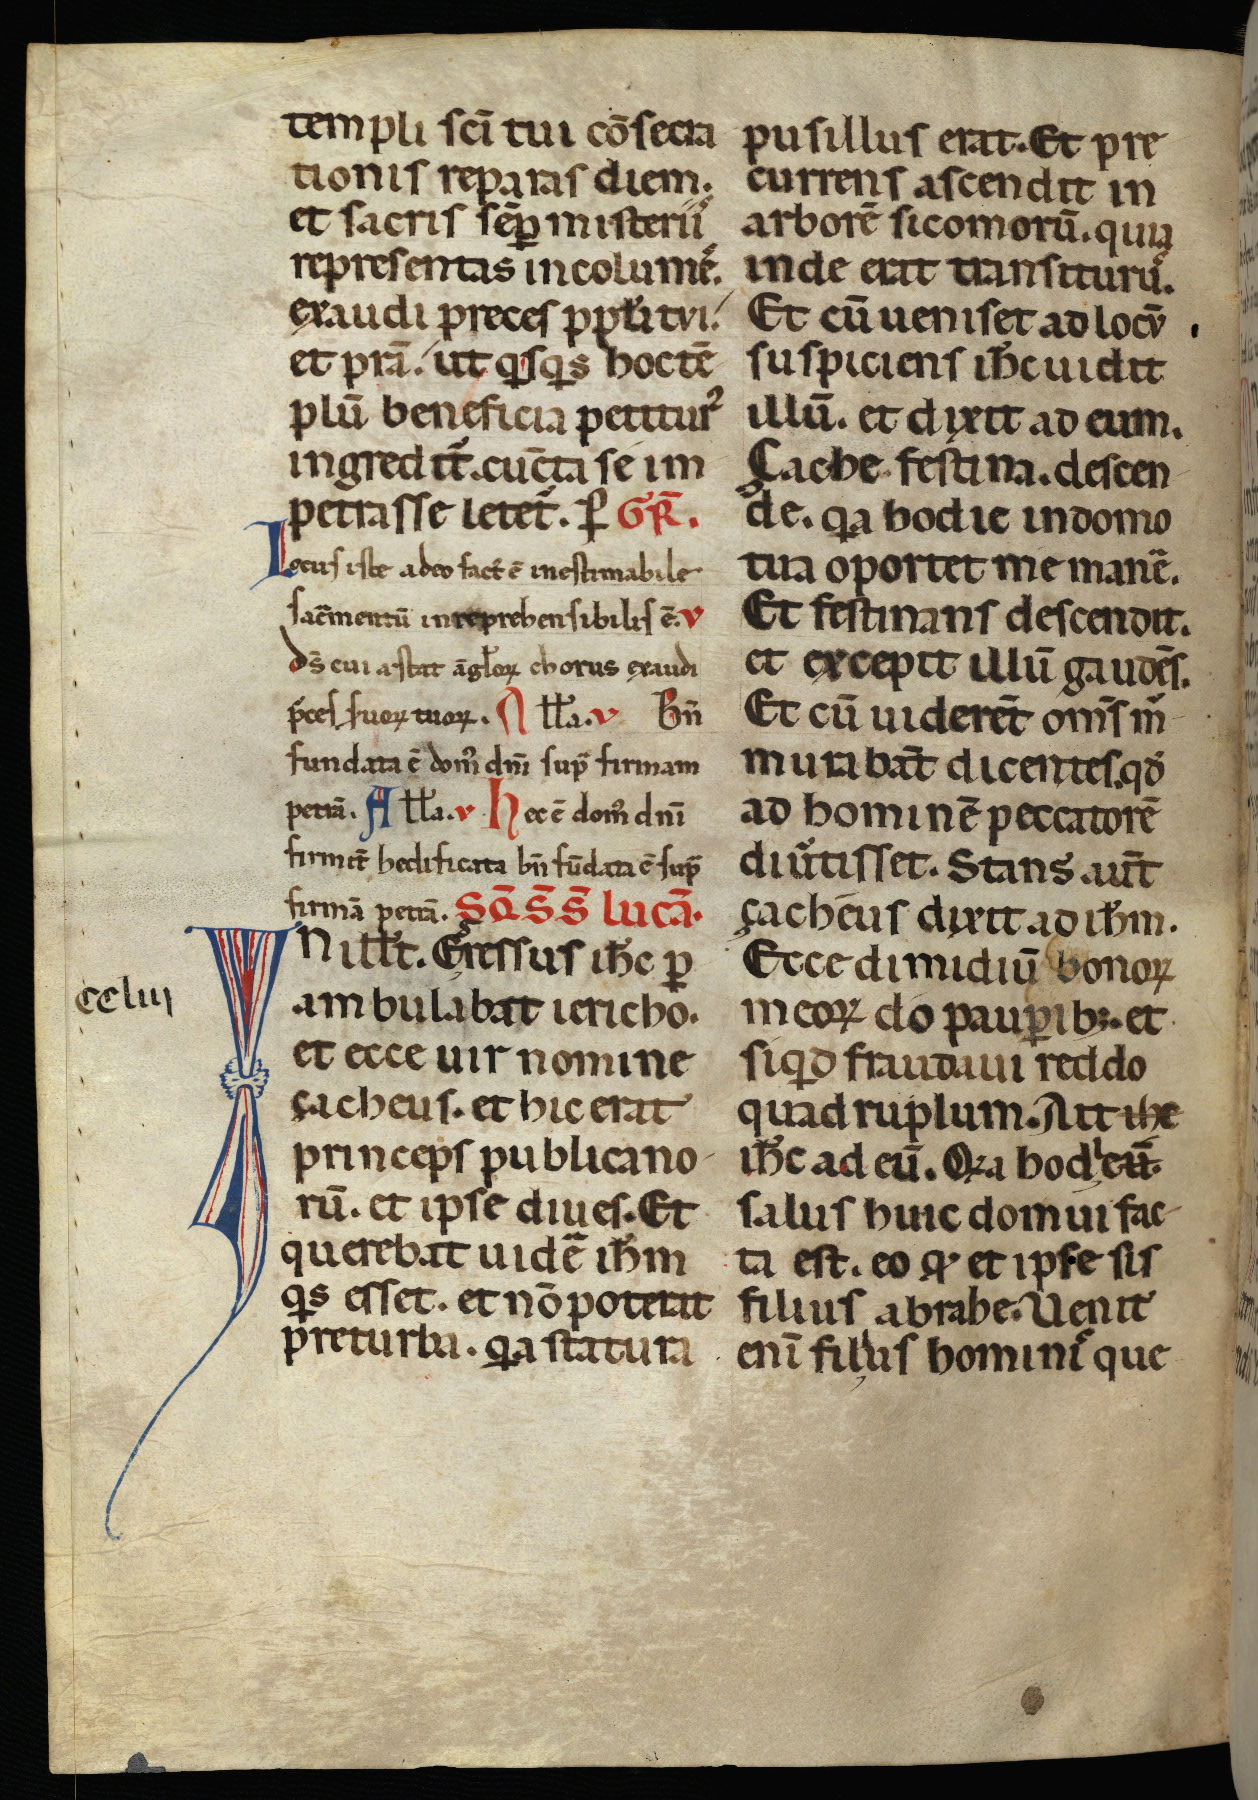 templi scī tui cōsecra
tionis reparas diem.
et sacris sēp misterii
representas incolumē.
exaudi preces ppl̄i tvi.
et prā. ut qisqis hoc tē
plū beneficia petitur
ingredit̄. cūcta se im
petrasse letet̄. P GR̄.
Locus iste a deo fact̄ ē inestimabile
sac̄mentū inreprehensibilis ē. v
ds̄ cui astat āgl̄oꝝ chorus exaudi
p̄ces suoꝝ tuoꝝ. All̄a. v Bn̄
fundata ē dom̄ dn̄i sup̄ firmam
petrā. All̄a. v Hec ē dom̄ dn̄i
firmit̄ hedificata bn̄ fūdata ē sup̄
firmā petrā. SQ̄ S̄ S̄ lucā.
IN ill̄t. Egressus ih̄c ꝑ
ambulabat iericho.
et ecce uir nomine
çacheus. et hic erat
princeps publicano
rū. et ipse diues. Et
querebat uidē ih̄m
qis esset. et nō poterat
pre turba. qa statura
cclui
pusillus erat. Et pre
currens ascendit in
arborē sicomorū. quia
inde erat transiturū.
Et cū ueniset ad locū
suspiciens ih̄c uidit
illū. et dixit ad eum.
Çache festina. descen
de. qa hodie in domo
tua oportet me manē.
Et festinans descendit.
et excepit illū gaudēs.
Et cū uiderēt om̄s m̄
murabāt dicentes. qd̄
ad hominē peccatorē
diūtisset. Stans aūt
çacheus dixit ad ih̄m.
Ecce dimidiū bonoꝝ
meoꝝ do pauꝑibꝫ. et
siqd fraudaui reddo
quadruplum. Ait ihe
ih̄c ad eū. Qia hodie
salus huic domui fac
ta est. eo qd et ipse sis
filius abrahe. Uenit
enī filius hominī que